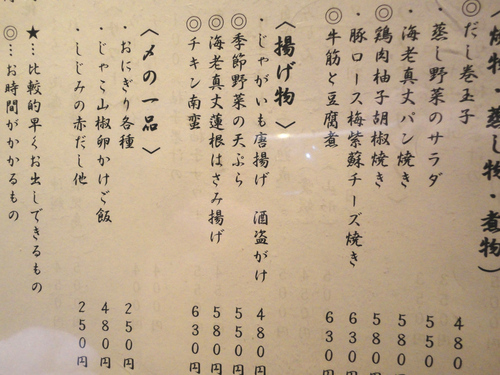 焼物・蒸し物・煮物〉
◎だし巻玉子 480
・蒸し野菜のサラダ 550
・海老真丈パン焼き 580円
◎鶏肉柚子胡椒焼き 580円
・豚ロース梅紫蘇チーズ焼き 630円
◎牛筋と豆腐煮 630円
〈揚げ物〉
・じゃがいも唐揚げ 酒盗がけ 480円
◎季節野菜の天ぷら 550円
◎海老真丈蓮根はさみ揚げ 580円
◎チキン南蛮 630円
〈〆の一品〉
・おにぎり各種 250円
・じゃこ山椒卵かけご飯 480円
・しじみの赤だし他 250円
★…比較的早くお出しできるもの
◎…お時間がかかるもの